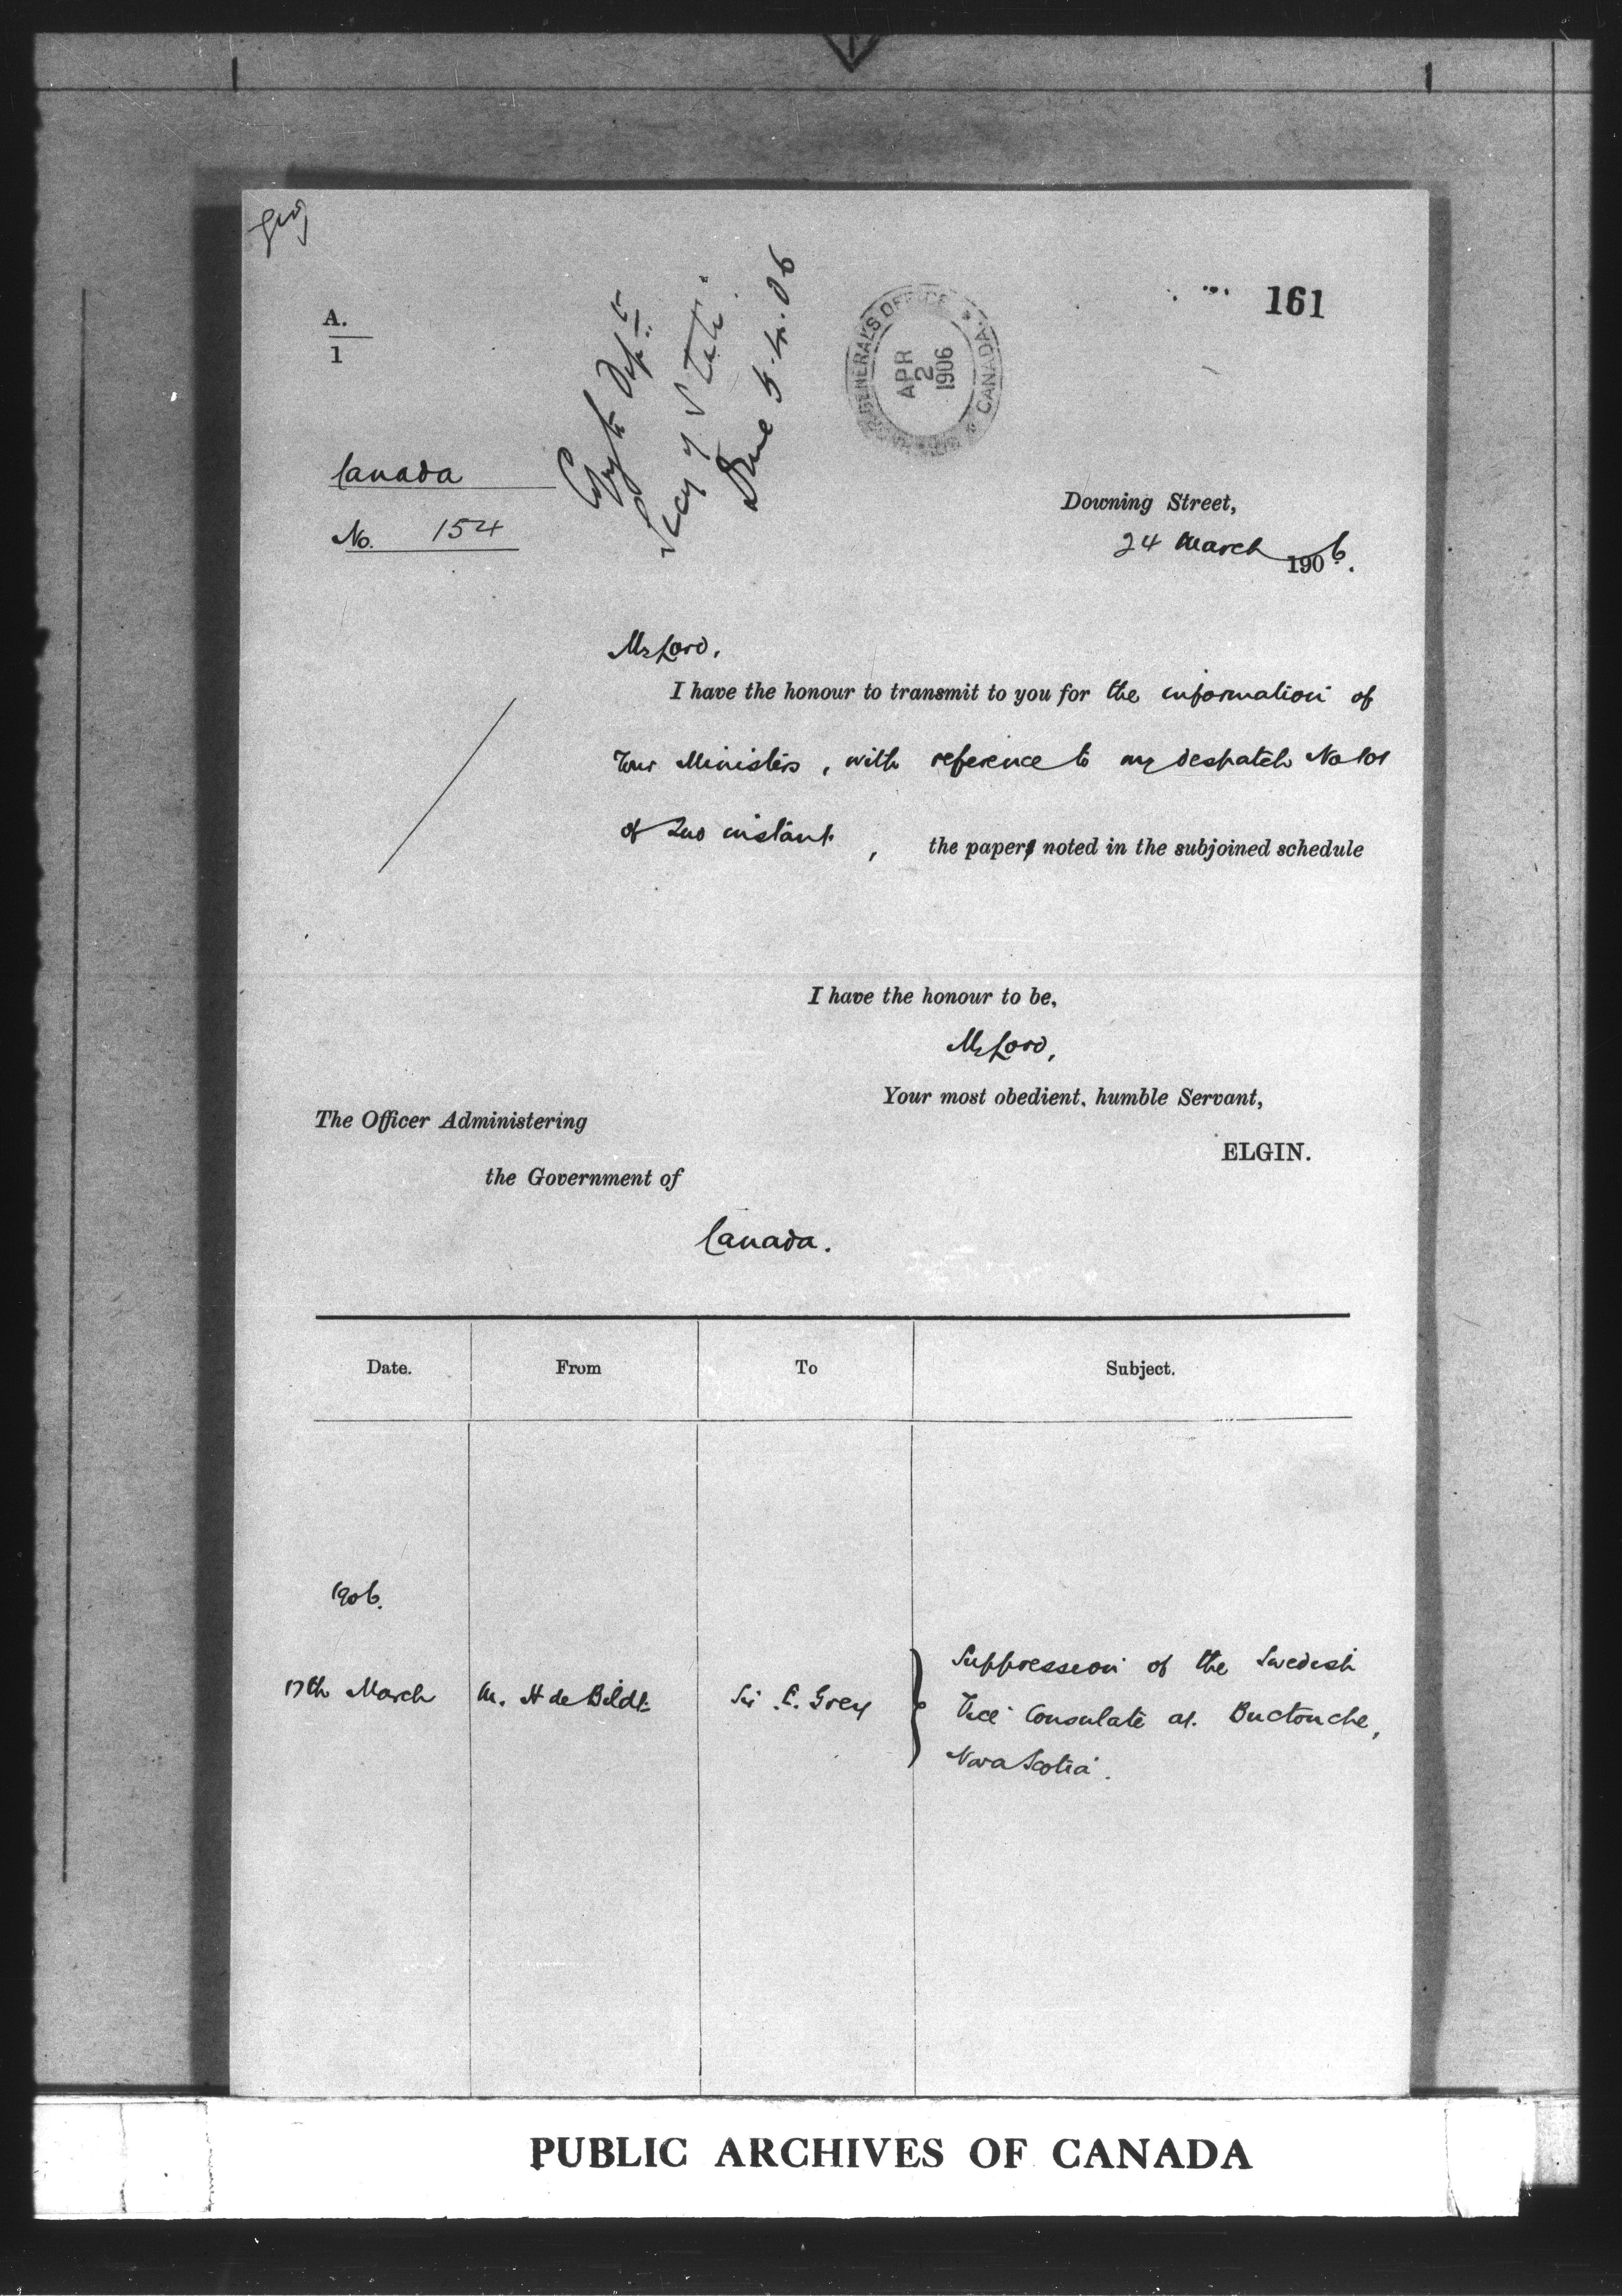 161
A.
1
GENERALS OFFICE
APR
2
1906
CANADA
Copy to Dept
Secy of State
Done 5.4.06
Canada
No. 154
Downing Street,
24 March 1906.
My Lord,
I have the honour to transmit to you for the information of
Your Ministers, with reference to my despatch No 101
of 2nd instant, the paper noted in the subjoined schedule
I have the honour to be,
My Lord,
Your most obedient, humble Servant,
ELGIN.
The Officer Administering
the Government of
Canada.
Date. From To Subject.
1906.
17th March M. H de Bildt Sir E. Grey Suppression of the Swedish
Vice Consulate at Buctouche,
Nova Scotia.
PUBLIC ARCHIVES OF CANADA